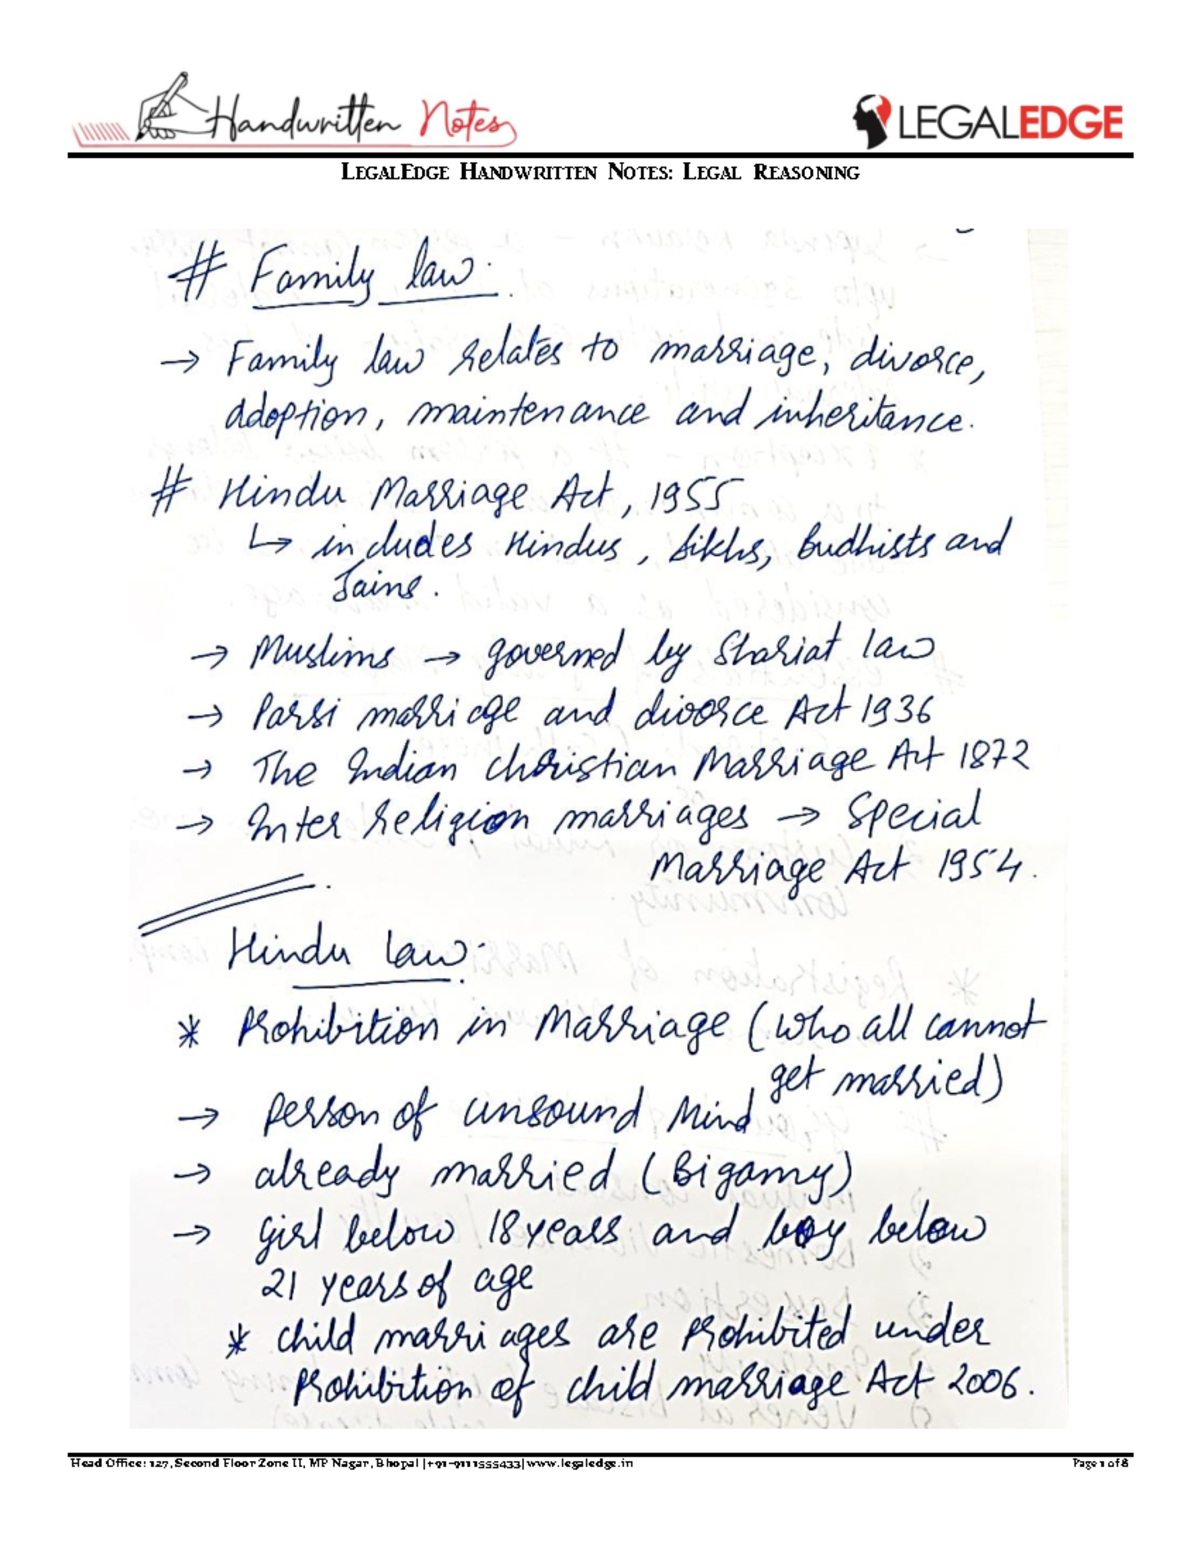 Handwritten Notes
LEGALEDGE
LEGALEDGE HANDWRITTEN NOTES: LEGAL REASONING
# Family law.
→ Family law relates to marriage, divorce,
adoption, maintenance and inheritance.
# Hindu Marriage Act, 1955
↳ includes Hindus, Sikhs, Budhists and
Jains.
→ Muslims → governed by Shariat law
→ Parsi marriage and divorce Act 1936
→ The Indian Christian Marriage Act 1872
→ Inter religion marriages → Special
Marriage Act 1954.
Hindu law.
* Prohibition in Marriage (who all cannot
get married)
→ Person of unsound Mind
→ already married (Bigamy)
→ girl below 18 years and boy below
21 years of age
* child marriages are prohibited under
Prohibition of child marriage Act 2006.
Head Office: 127, Second Floor Zone II, MP Nagar, Bhopal |+91-9111555433| www.legaledge.in
Page 1 of 8